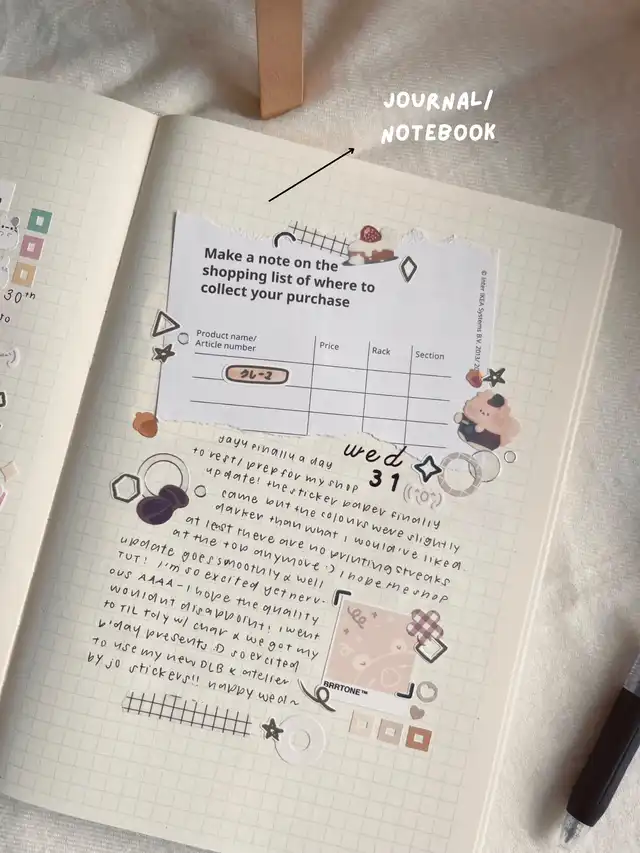 JOURNAL/
NOTEBOOK
30th
Make a note on the
shopping list of where to
collect your purchase
© Inter IKEA Systems B.V. 2013/2
Product name/
Article number
Price
Rack
Section
wed
31
yayy finally a day
to rest/prep for my shop
update! the sticker paper finally
came but the colours were slightly
darker than what i would've liked
at least there are no printing streaks
at the top anymore :) i hope the shop
update goes smoothly & well
TUT! i'm so excited yet nerv-
ous AAAA - i hope the quality
wouldnt disappoint! i went
to TIL tdy w/ char & we got my
b'day presents :D so excited
to use my new DLB & atelier
by jo stickers!! happy wed~
BRRTONE™